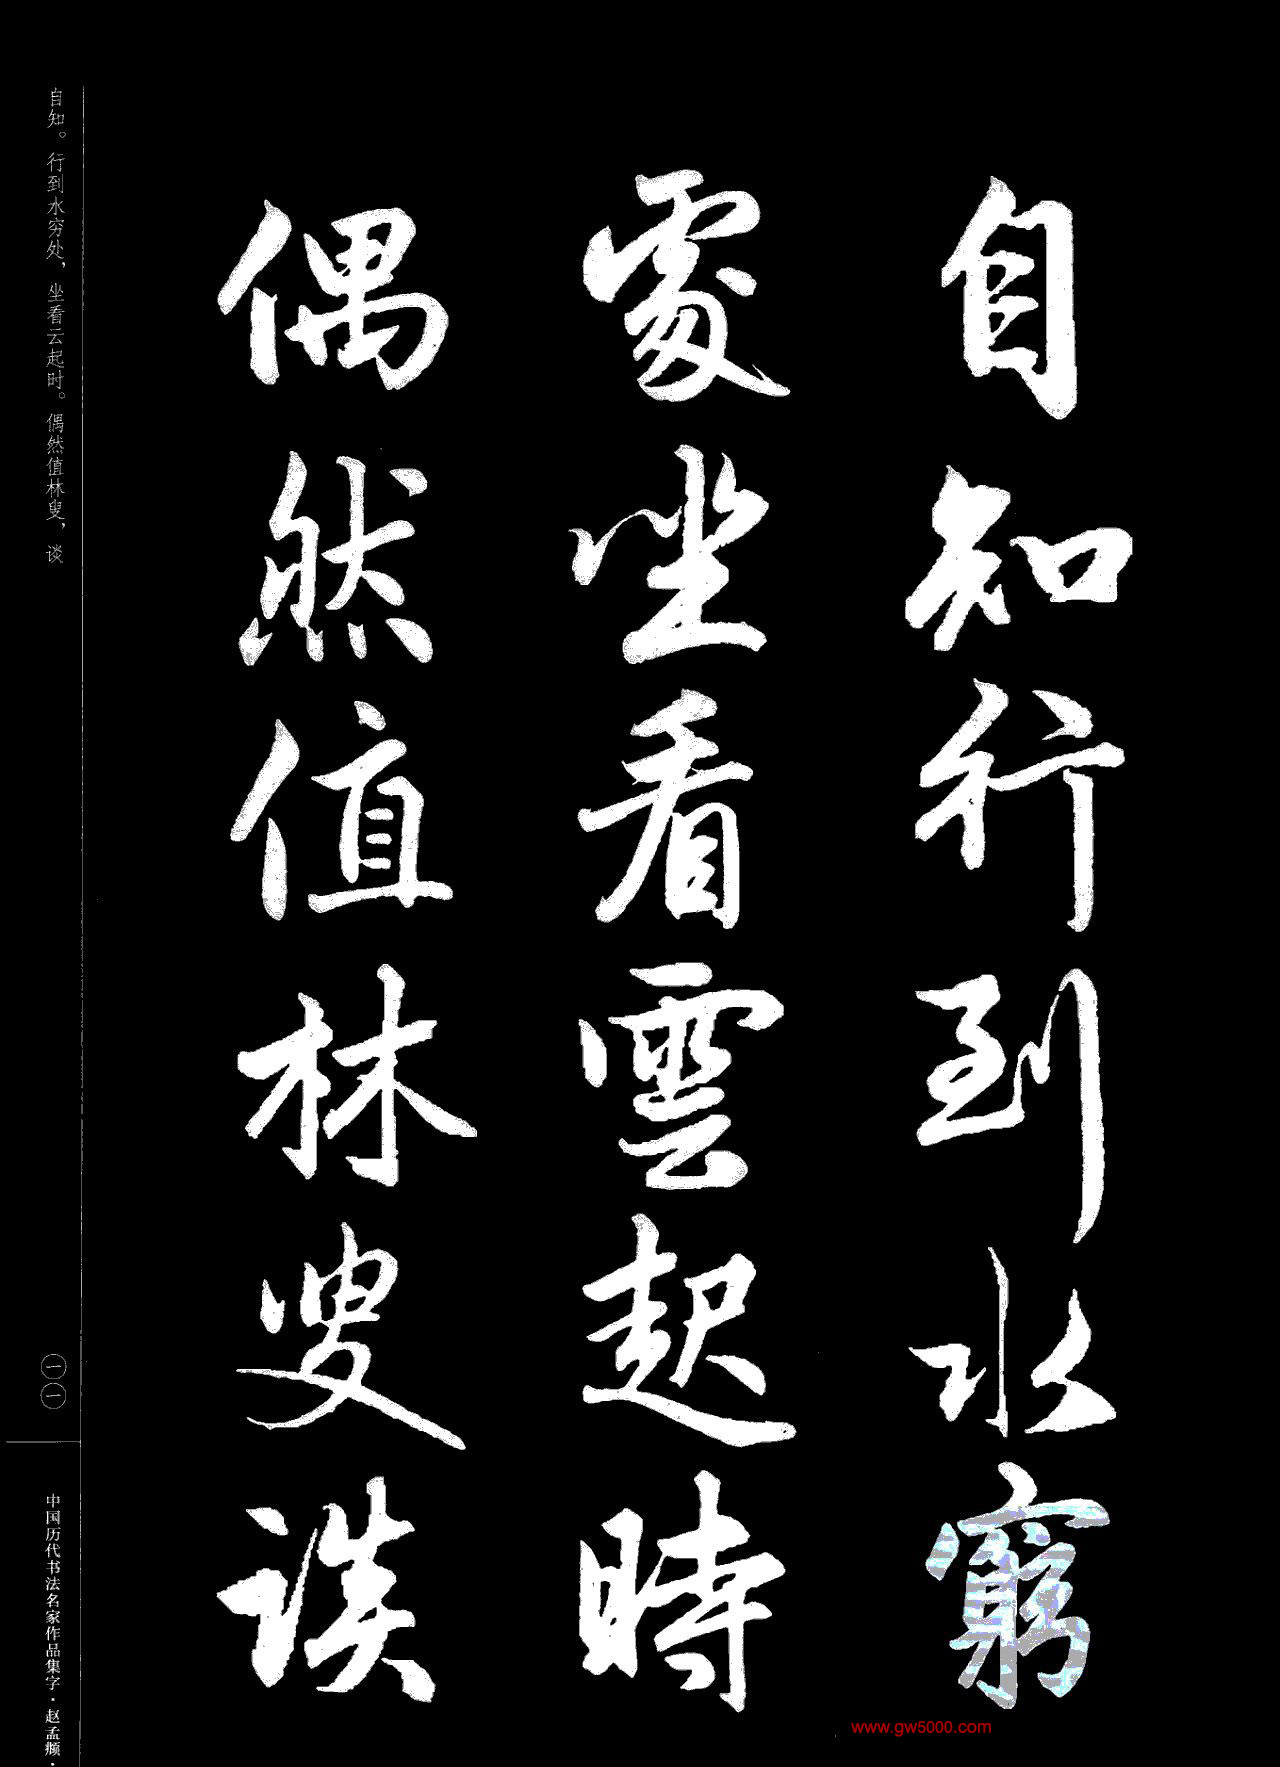 自知行到水窮
處坐看雲起時
偶然值林叟談
自知。行到水穷处，坐看云起时。偶然值林叟，谈
一一
中国历代书法名家作品集字·赵孟頫·
www.gw5000.com